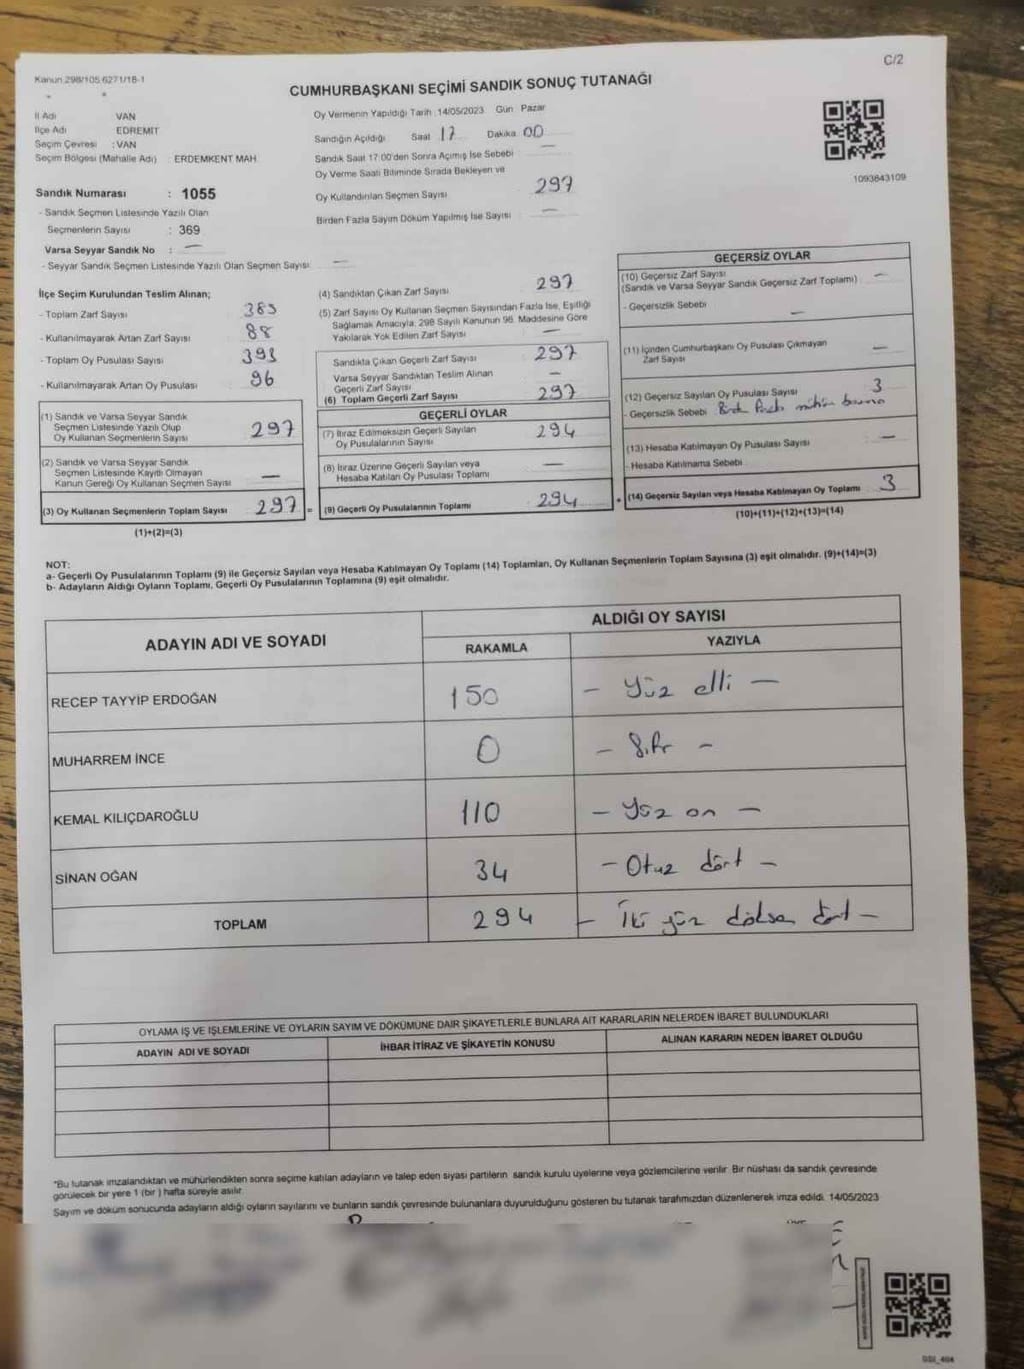 C/2
Kanun 298/105 6271/18-1
CUMHURBAŞKANI SEÇİMİ SANDIK SONUÇ TUTANAĞI
İl Adı VAN
İlçe Adı EDREMİT
Seçim Çevresi : VAN
Seçim Bölgesi (Mahalle Adı) : ERDEMKENT MAH.
Sandık Numarası : 1055
- Sandık Seçmen Listesinde Yazılı Olan
Seçmenlerin Sayısı : 369
Varsa Seyyar Sandık No : —
- Seyyar Sandık Seçmen Listesinde Yazılı Olan Seçmen Sayısı: —
Oy Vermenin Yapıldığı Tarih :14/05/2023 Gün Pazar
Sandığın Açıldığı Saat 17 Dakika 00
Sandık Saat 17:00'den Sonra Açılmış İse Sebebi —
Oy Verme Saati Bitiminde Sırada Bekleyen ve
Oy Kullandırılan Seçmen Sayısı 297
Birden Fazla Sayım Döküm Yapılmış İse Sayısı —
1093843109
İlçe Seçim Kurulundan Teslim Alınan;
- Toplam Zarf Sayısı 385
- Kullanılmayarak Artan Zarf Sayısı 88
- Toplam Oy Pusulası Sayısı 393
- Kullanılmayarak Artan Oy Pusulası 96
(1) Sandık ve Varsa Seyyar Sandık
Seçmen Listesinde Yazılı Olup
Oy Kullanan Seçmenlerin Sayısı 297
(2) Sandık ve Varsa Seyyar Sandık
Seçmen Listesinde Kayıtlı Olmayan
Kanun Gereği Oy Kullanan Seçmen Sayısı —
(3) Oy Kullanan Seçmenlerin Toplam Sayısı 297 =
(1)+(2)=(3)
(4) Sandıktan Çıkan Zarf Sayısı 297
(5) Zarf Sayısı Oy Kullanan Seçmen Sayısından Fazla İse, Eşitliği
Sağlamak Amacıyla, 298 Sayılı Kanunun 98. Maddesine Göre
Yakılarak Yok Edilen Zarf Sayısı —
Sandıkta Çıkan Geçerli Zarf Sayısı 297
Varsa Seyyar Sandıktan Teslim Alınan
Geçerli Zarf Sayısı —
(6) Toplam Geçerli Zarf Sayısı 297
GEÇERLİ OYLAR
(7) İtiraz Edilmeksizin Geçerli Sayılan
Oy Pusulalarının Sayısı 294
(8) İtiraz Üzerine Geçerli Sayılan veya
Hesaba Katılan Oy Pusulası Toplamı —
(9) Geçerli Oy Pusulalarının Toplamı 294 +
GEÇERSİZ OYLAR
(10) Geçersiz Zarf Sayısı
(Sandık ve Varsa Seyyar Sandık Geçersiz Zarf Toplamı) —
- Geçersizlik Sebebi —
(11) İçinden Cumhurbaşkanı Oy Pusulası Çıkmayan
Zarf Sayısı —
(12) Geçersiz Sayılan Oy Pusulası Sayısı 3
- Geçersizlik Sebebi mühür
(13) Hesaba Katılmayan Oy Pusulası Sayısı —
- Hesaba Katılmama Sebebi
(14) Geçersiz Sayılan veya Hesaba Katılmayan Oy Toplamı 3
(10)+(11)+(12)+(13)=(14)
NOT:
a- Geçerli Oy Pusulalarının Toplamı (9) ile Geçersiz Sayılan veya Hesaba Katılmayan Oy Toplamı (14) Toplamları, Oy Kullanan Seçmenlerin Toplam Sayısına (3) eşit olmalıdır. (9)+(14)=(3)
b- Adayların Aldığı Oyların Toplamı, Geçerli Oy Pusulalarının Toplamına (9) eşit olmalıdır.
ADAYIN ADI VE SOYADI ALDIĞI OY SAYISI
RAKAMLA YAZIYLA
RECEP TAYYİP ERDOĞAN 150 – Yüz elli –
MUHARREM İNCE 0 – Sıfır –
KEMAL KILIÇDAROĞLU 110 – Yüz on –
SİNAN OĞAN 34 – Otuz dört –
TOPLAM 294 – İki yüz doksan dört –
OYLAMA İŞ VE İŞLEMLERİNE VE OYLARIN SAYIM VE DÖKÜMÜNE DAİR ŞİKAYETLERLE BUNLARA AİT KARARLARIN NELERDEN İBARET BULUNDUKLARI
ADAYIN ADI VE SOYADI İHBAR İTİRAZ VE ŞİKAYETİN KONUSU ALINAN KARARIN NEDEN İBARET OLDUĞU
*Bu tutanak imzalandıktan ve mühürlendikten sonra seçime katılan adayların ve talep eden siyasi partilerin sandık kurulu üyelerine veya gözlemcilerine verilir. Bir nüshası da sandık çevresinde
görülecek bir yere 1 (bir) hafta süreyle asılır.
Sayım ve döküm sonucunda adayların aldığı oyların sayılarını ve bunların sandık çevresinde bulunanlara duyurulduğunu gösteren bu tutanak tarafımızdan düzenlenerek imza edildi. 14/05/2023